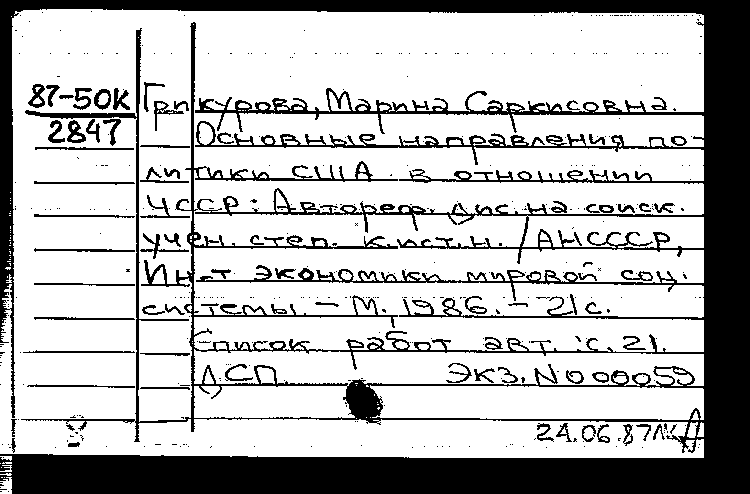 87-50К Грикурова, Марина Саркисовна.
2847 Основные направления по-
литики США в отношении
ЧССР: Автореф. дис. на соиск.
учен. степ. к.ист.н. / АН СССР,
Ин-т экономики мировой соц.
системы. – М., 1986. – 21 с.
Список работ авт.: с. 21.
ДСП. Экз. N 000059
24.06.87